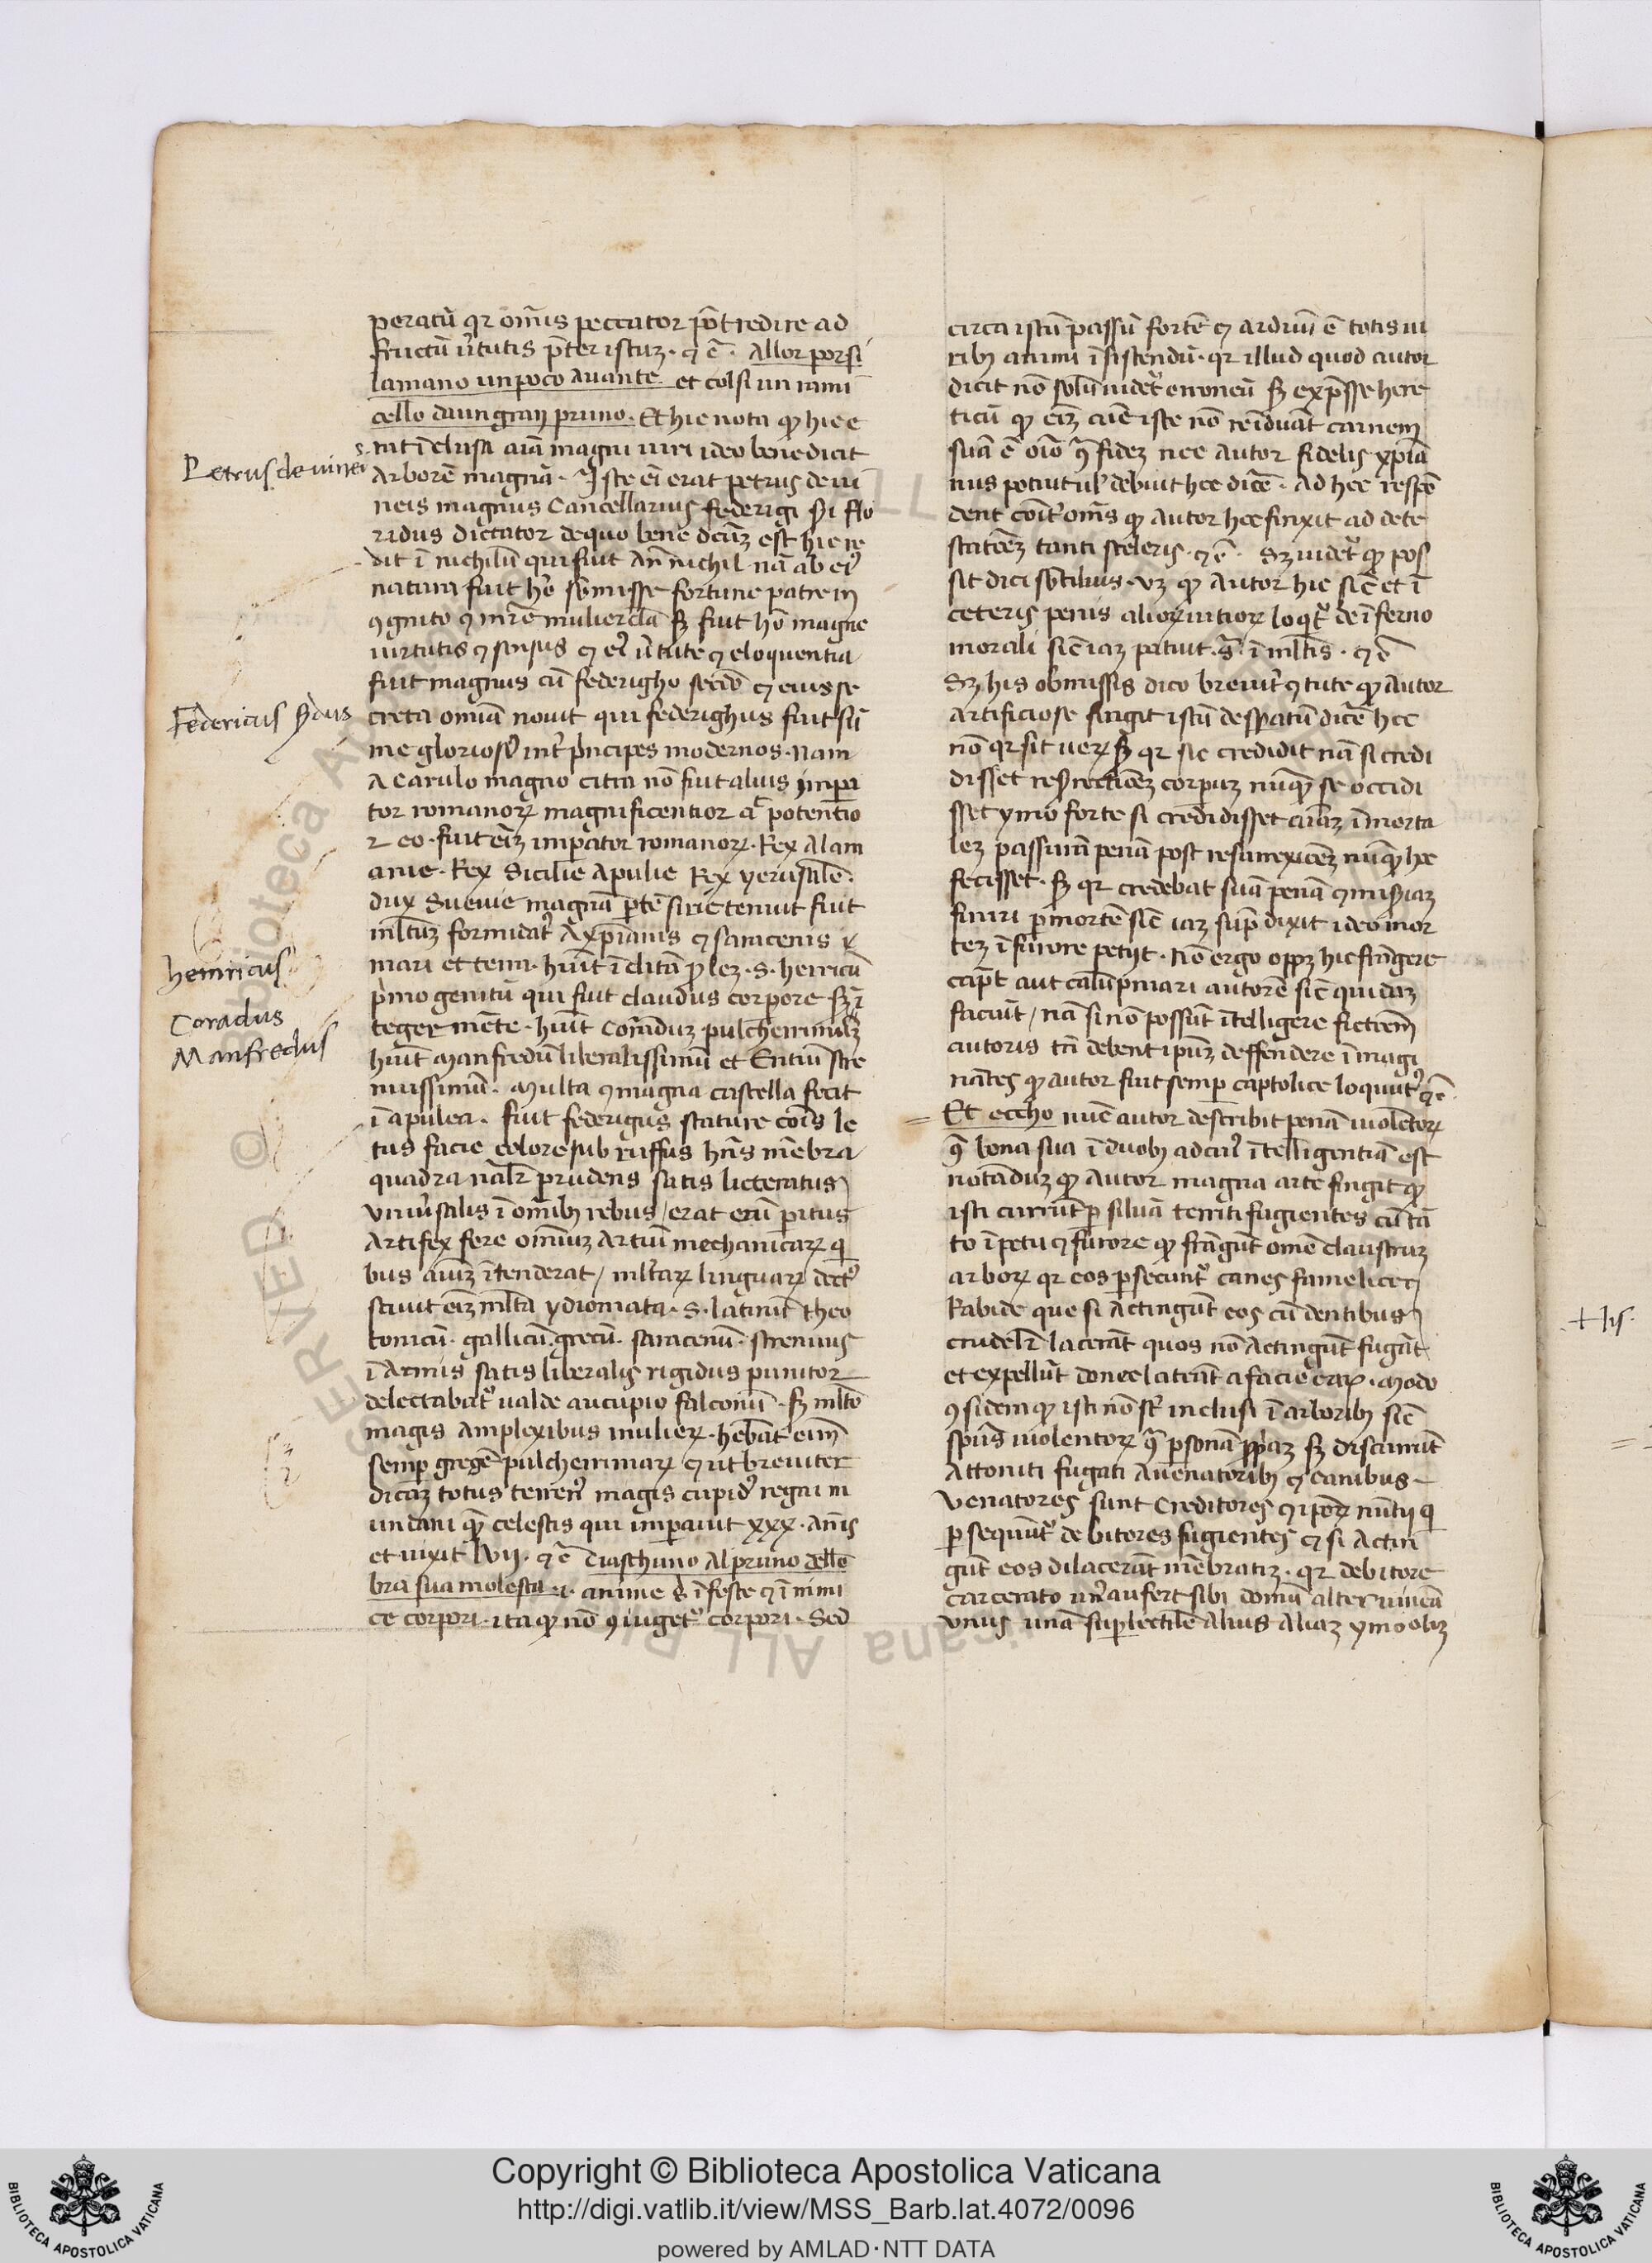 peratũ qr om̃is peccator põt redire ad
fructũ ũtutis p̃ter istuz · ⁊ c̃ · Allor porsi
lamano unpoco auante et colsi un rami
cello daungran pruno. Et hic nota ꝙ hic e
rat ĩclusa aĩa magni uiri ideo bene dicit
Arborẽ magnã · Iste eĩ erat petrus de ui
Petrus de vineis
neis magnus Cancellarius federigi s̃di flo
ridus dictator dequo bene dcũz est hic re
dit ĩ nichilũ qui fuit añ nichil nã ab eiꝰ
natura fuit hõ sb̃misse fortune patre in
ꝯgnito ⁊ mr̃e muliercla sꝫ fuit hõ magne
uirtutis ⁊ sensus ⁊ eiꝰ ũtute ⁊ eloquentia
fuit magnus cũ federigho sec̃do ⁊ eius se
Federicus s̃dus
creta omĩa nouit qui federighus fuit sũ
me gloriosꝰ int̃ p̃ncipes modernos · nam
A carulo magno citra nõ fuit alius impa
tor romanoꝝ magnificentior a͡c potentio
r eo · fuit eĩz imperator romanoꝝ · Rex alam
anie · Rex Sicilie Apulie Rex yerusalẽ ·
dux Sueuie magnã p̃tẽ sirie tenuit fuit
ml̃tuz formidatꝰ A xp̃ianis ⁊ saracenis ĩ
mari et terra · hũit ĩclitã ꝓlez · s · henricũ
henricus
p̃mo genitũ qui fuit claudus corpore sꝫ ĩ
Coradus
teger mẽte · hũit Corraduz pulcherrimuz
Manfredus
hũit Manfredũ liberalissimũ et Entiũ stre
nuissimũ · Multa ⁊ magna castella fecit
ĩ apulea · fuit federigus stature cõis le
tus facie colore sub ruffus hñs mẽbra
quadra nãlr̃ prudens satis licteratus
vniũsalis ĩ omĩbꝫ rebus / erat eñi peritus
Artifex fere omniuz Artiũ mechanicaꝝ q̃
bus aĩuz ĩtenderat / ml̃taꝝ linguaꝝ doctꝰ
sciuit eĩz ml̃ta ydiomata · s · latinũ theo
tonicũ · gallicũ · grecũ · saracenũ · strenuus
ĩ Armis satis liberalis rigidus punitor
delectabat̃ ualde aucupio falconũ · sꝫ ml̃to
magis Amplexibus mulieꝝ · hẽbat eniȝ
semꝑ gregẽ pulcherrimaꝝ ⁊ ut breuiter
dicaz totus terrenꝰ magis cupidꝰ regni m
undani quaꝫ celestis qui imperauit xxx · Ãnis
et uixit lvij · ⁊ c̃ Ciaschuno Alpruno dellõ
bra sua molesta · i · anime s̃ ĩfeste ⁊ ĩnimi
ce corpori · ita ꝙ nõ ꝯiuget̃ corpori · Sed
circa istũ passũ fortẽ ⁊ arduũ ẽ totis ui
ribꝫ animi ĩsistendũ · qr illud quod autor
dicit nõ solũ uidet̃ erroneũ sꝫ exp̃sse here
ticũ ꝙ eĩz aĩe iste nõ reĩduãt carnem
suã ẽ oĩo ꝯ̃ fidez nec Autor fidelis xp̃ia
nus potuit ul̃ debuit hec dicẽ · Ad hec respõ
dent cõit̃ om̃s ꝙ Autor hec finxit ad dete
statiõez tanti sceleris · ⁊ c̃ · Sꝫ uidet̃ ꝙ pos
sit dici sb̃tilius · vz ꝙ Autor hic sic̃ et ĩ
ceteris penis alioꝝ uitioꝝ loqt̃ de ĩferno
morali sic̃ iaz patuit s̃ ĩ ml̃tis · ⁊ c̃
Sꝫ his obmissis dico breuit̃ ⁊ tute ꝙ Autor
Artificiose fingit istũ desperatũ dicẽ hec
nõ qr sit ueꝝ sꝫ qr sic credidit nã si credi
disset resr̃rectiõez corpuz nũqꝫ se occidi
sset ymo forte si credidisset aĩaz ĩmorta
lez passurã penã post resurrexiõez nũqꝫ hec
fecisset · sꝫ qr credebat suã penã ⁊ mis̃iaz
finiri ꝑ mortẽ sic̃ iaz sup̃ dixit ideo mor
tez ĩ furore petijt · Nõ ergo oppꝫ hic frãgere
capt̃ aut calũpniari autorẽ sic̃ quidaz
faciũt / nã si nõ possũt ĩtelligere fictiẽm
autoris tñ debent ipũz deffendere ĩmagi
nãtes ꝙ autor fuit semꝑ captolice loquutꝰ ⁊c̃
Et eccho nũc autor describit penã uiolentoꝝ
ꝯ̃ bona sua ĩ duobꝫ ad cuiꝰ ĩtelligentiã est
notãduz ꝙ Autor magna arte fingit ꝙ
isti currũt ꝑ siluã territi fugientes cũ tã
to ĩpetu ⁊ furore ꝙ frãgũt omẽ claustruz
arboꝝ qr eos ꝑsecunt̃ canes famelice ⁊
Rabide que si Actingũt eos cũ dentibus
crudelr̃ lacerãt quos nõ Actingũt fugãt
et expellũt donec lateãt a facie eaꝝ · modo
ꝯsidera ꝙ isti nõ st̃ inclusi ĩ arboribꝫ sic̃
sp̃us uiolentoꝝ ꝯ̃ ꝑsonã ꝓp̃iaz sꝫ discurrũt
Attoniti fugati A uenatoribꝫ ⁊ canibus
venatores sunt Creditores ⁊ ip̃oꝝ nũtij q̃
ꝑsequũt̃ debitores fugientes ⁊ si Actin
gũt eos dilacerãt mẽbratiz · qr debitore
carcerato unꝰ aufert sibi domũ alter uineã
vnus unã supelectilẽ Alius Aliaz ymo obꝫ
+ his.
Copyright © Biblioteca Apostolica Vaticana
http://digi.vatlib.it/view/MSS_Barb.lat.4072/0096
powered by AMLAD·NTT DATA
BIBLIOTECA APOSTOLICA VATICANA
BIBLIOTECA APOSTOLICA VATICANA